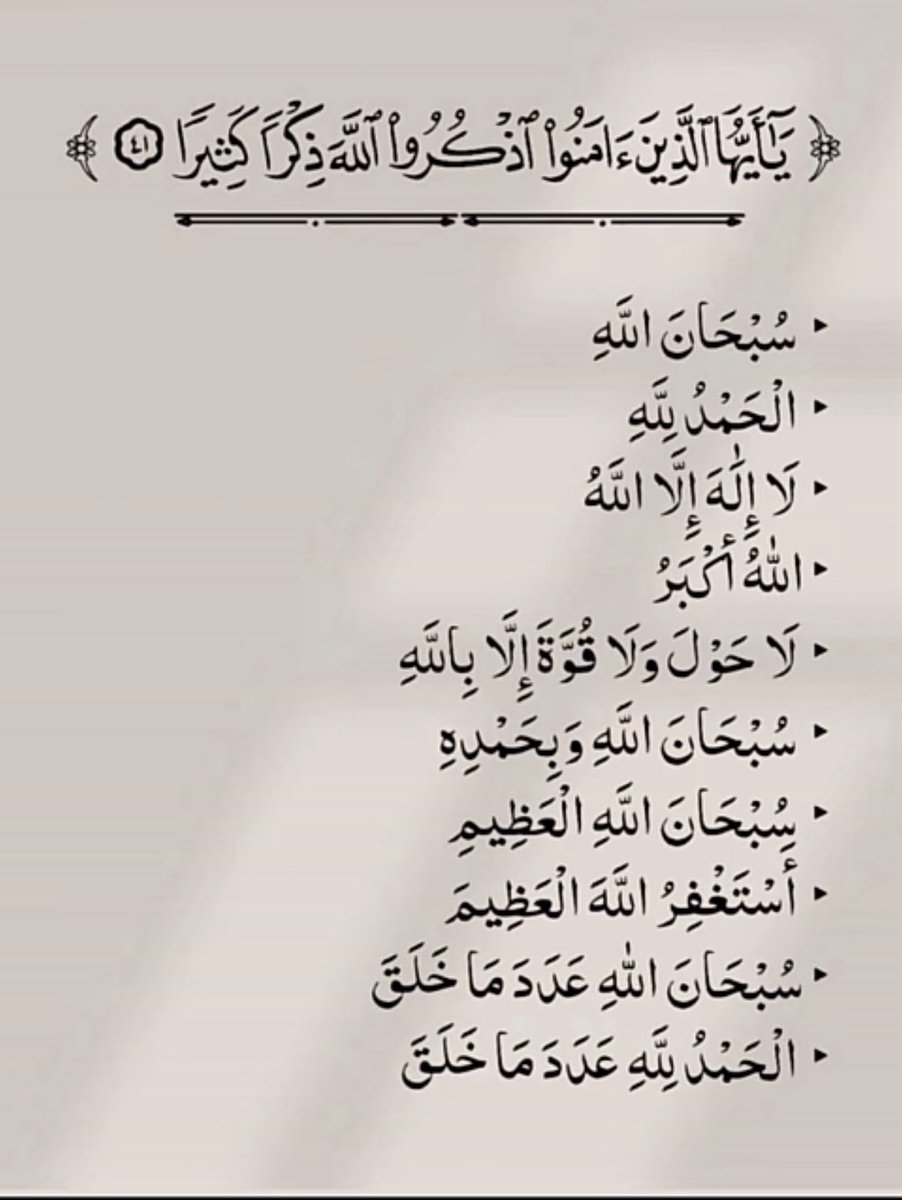 ﴿ يَـٰٓأَيُّهَا ٱلَّذِينَ ءَامَنُوا۟ ٱذْكُرُوا۟ ٱللَّهَ ذِكْرًا كَثِيرًا ٤١ ﴾
‣ سُبْحَانَ اللَّهِ
‣ الْحَمْدُ لِلَّهِ
‣ لَا إِلَٰهَ إِلَّا اللَّهُ
‣ اللهُ أَكْبَرُ
‣ لَا حَوْلَ وَلَا قُوَّةَ إِلَّا بِاللَّهِ
‣ سُبْحَانَ اللَّهِ وَبِحَمْدِهِ
‣ سُبْحَانَ اللَّهِ الْعَظِيمِ
‣ أَسْتَغْفِرُ اللَّهَ الْعَظِيمَ
‣ سُبْحَانَ اللهِ عَدَدَ مَا خَلَقَ
‣ الْحَمْدُ لِلَّهِ عَدَدَ مَا خَلَقَ